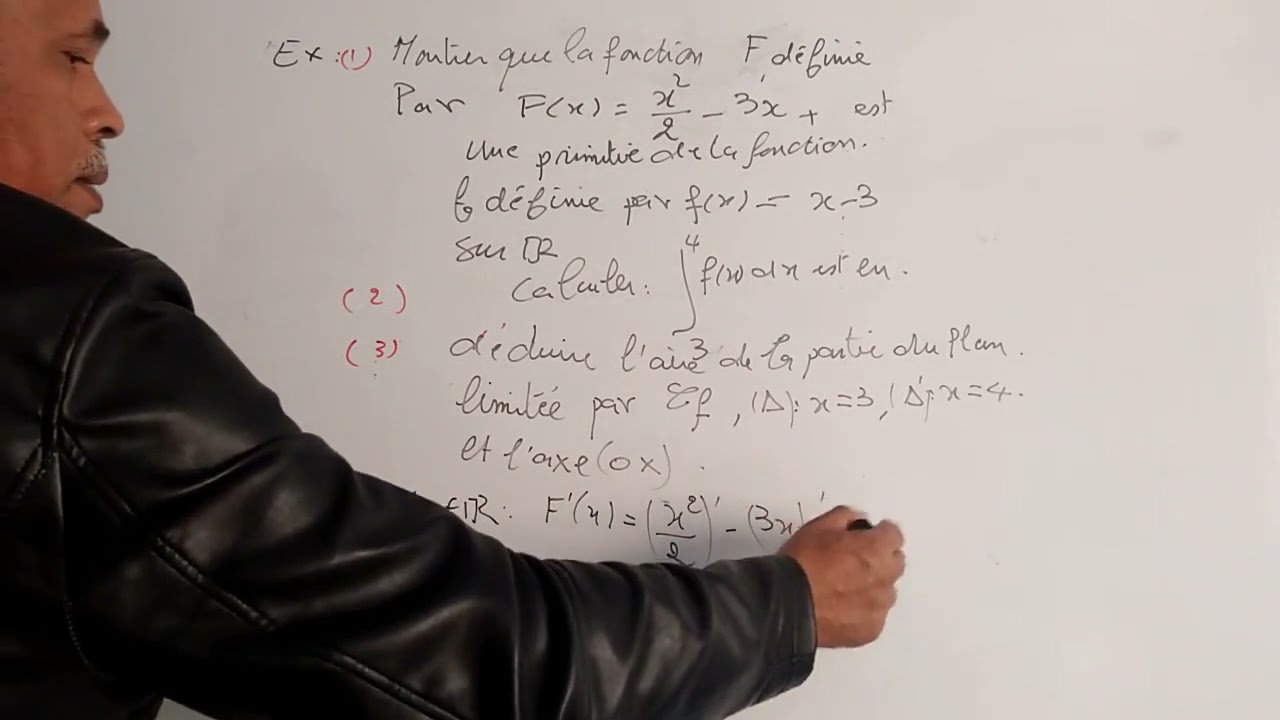 Ex : (1) Montrer que la fonction F définie
Par F(x) = x²/2 - 3x + est
Une primitive de la fonction.
f définie par f(x) = x-3
sur ℝ
(2) Calculer : ∫₃⁴ f(x) dx est en.
(3) déduire l'aire de la partie du Plan.
limitée par ℰf, (Δ): x=3, (Δ'): x=4.
et l'axe (ox).
∈ℝ: F'(x) = (x²/2)' - (3x)'